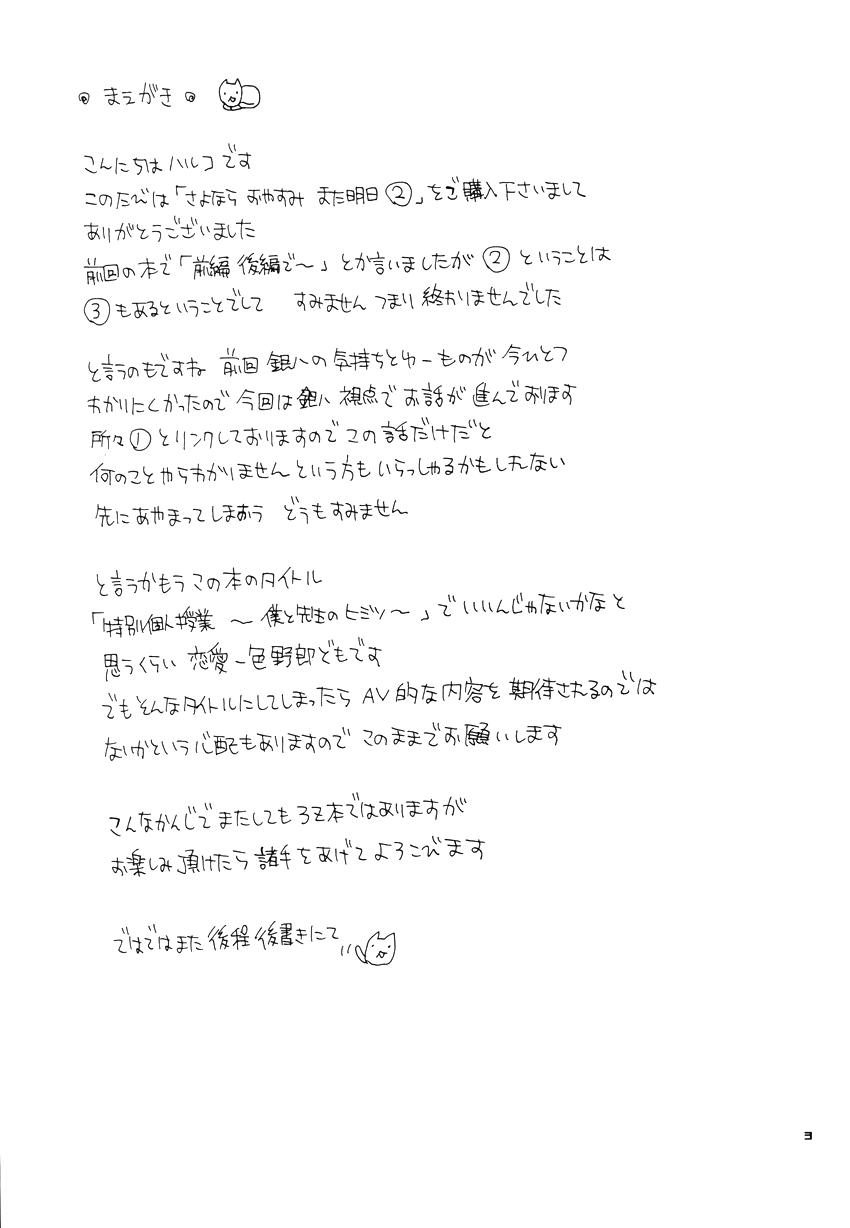 ◎ まえがき ◎
こんにちは ハルコです
このたびは「さよなら おやすみ また明日 ②」をご購入下さいまして
ありがとうございました
前回の本で「前編 後編で〜」とか言いましたが ② ということは
③ もあるということでして すみません つまり 終わりませんでした
と言うのもですね 前回 銀八の気持ちとゆーものが 今ひとつ
わかりにくかったので 今回は銀八 視点で お話が 進んでおります
所々 ① とリンクしておりますので この話だけだと
何のことやらわかりません という方も いらっしゃるかもしれない
先にあやまってしまおう どうもすみません
と言うかもう この本のタイトル
「特別個人授業 〜 僕と先生のヒミツ 〜」で いいんじゃないかなと
思うくらい 恋愛一色野郎どもです
でもそんなタイトルにしてしまったら AV的な内容を 期待されるのでは
ないかという心配もありますので このままでお願いします
こんなかんじで またしても 3Z本ではありますが
お楽しみ頂けたら 諸手をあげて よろこびます
ではではまた 後程 後書きにて
3